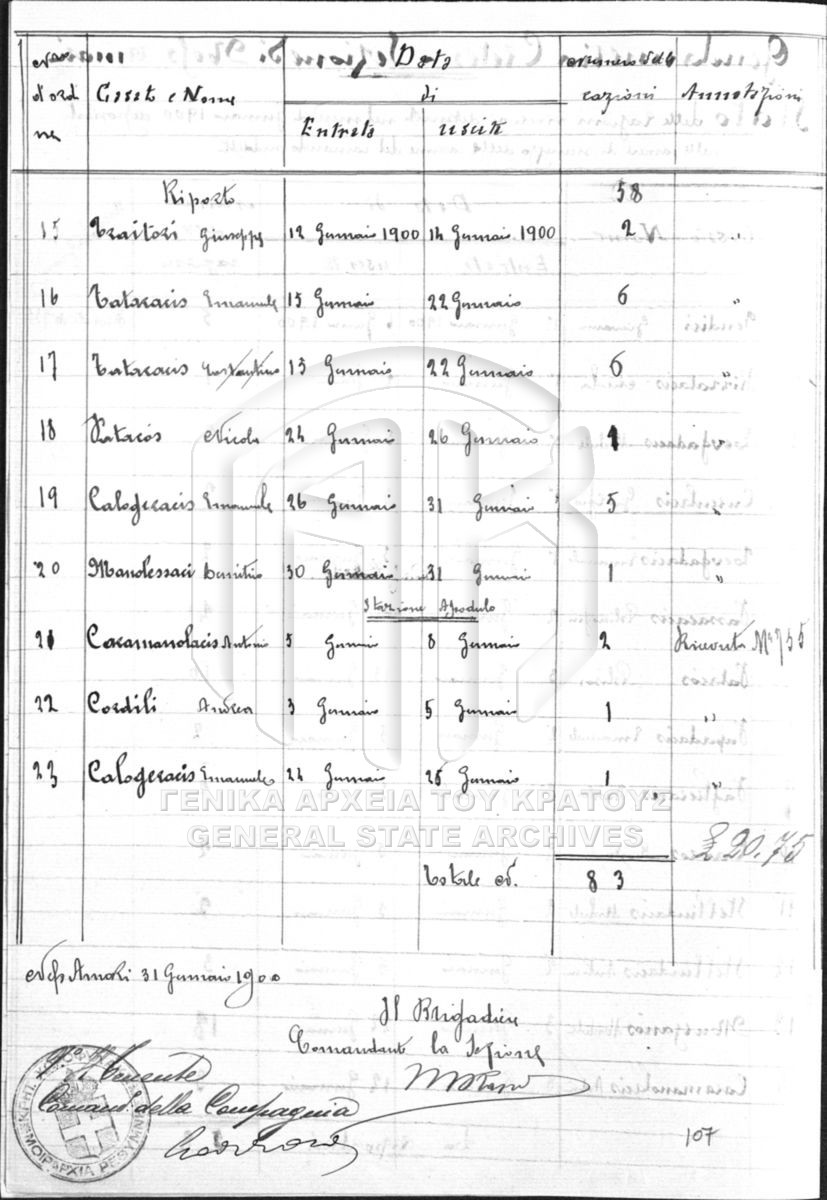 N° d'ordine Casato e Nome Data di Entrata uscita Numero delle razioni Annotazioni
Riporto 58
15 Traitori Giuseppe 12 Gennaio 1900 14 Gennaio 1900 2 "
16 Tatacacis Emanuele 15 Gennaio 22 Gennaio 6 "
17 Tatacacis Costantino 15 Gennaio 22 Gennaio 6 "
18 Patacos Nicola 24 Gennaio 26 Gennaio 1 "
19 Calogeracis Emanuele 26 Gennaio 31 Gennaio 5 "
20 Manolessaci Dimitrio 30 Gennaio 31 Gennaio 1 "
Stazione Apodulo
21 Caramanolacis Antonio 5 Gennaio 8 Gennaio 2 Ricevuta N° 755
22 Cordili Andrea 3 Gennaio 5 Gennaio 1 "
23 Calogeracis Emanuele 24 Gennaio 25 Gennaio 1 "
ΓΕΝΙΚΑ ΑΡΧΕΙΑ ΤΟΥ ΚΡΑΤΟΥΣ
GENERAL STATE ARCHIVES
£ 20.75
Totale N. 83
31 Gennaio 1900
Il Brigadiere
Comandante la Sezione
Il Tenente
Comand. della Compagnia
107